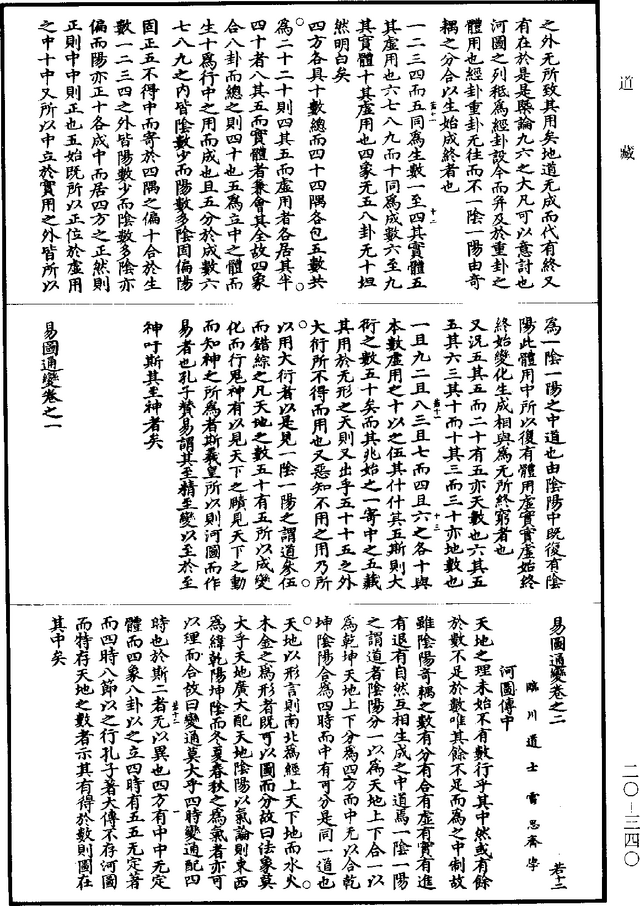 道藏
之外无所致其用矣地道无成而代有終又
有在於是是槩論九六之大凡可以意討也
河圖之列秪為經卦設今而弁及於重卦之
體用也經卦重卦无往而不一陰一陽由奇
耦之分合以生始成終者也
一二三四而五同為生數一至四其實體五
其虛用也六七八九而十同為成數六至九
其實體十其虛用也四象无五八卦无十坦
然明白矣
四方各具十數總而四十四隅各包五數共
為二十二十則四其五而虛用者各居其半
四十者八其五而實體者兼會其全故四象
合八卦而總之則四十也五為立中之體而
生十為行中之用而成也且五分於成數六
七八九之內皆陰數少而陽數多陰固偏陽
固正五不得中而寄於四隅之偏十合於生
數一二三四之外皆陽數少而陰數多陰亦
偏而陽亦正十各成中而居四方之正然則
正則中中則正也五始既所以正位於虛用
之中十中又所以中立於實用之外皆所以
為一陰一陽之中道也由陰陽中既復有陰
陽此體用中所以復有體用虛實實虛始終
終始變化生成相與為无所終窮者也
又況五其五而二十有五亦天數也六其五
五其六三其十而十其三而三十亦地數也
一且九二且八三且七而四且六之各十與
本數虛用之十以之伍其什什其五斯則大
衍之數五十矣而其兆始之一寄中之五藏
其用於无形之天則又出乎五十十五之外
大衍所不得而用也又惡知不用之用乃所
以用大衍者以是見一陰一陽之謂道參伍
而錯綜之凡天地之數五十有五所以成變
化而行鬼神有以見天下之賾見天下之動
而知神之所為者斯羲皇所以則河圖而作
易者也孔子贊易謂其至精至變以至於至
神吁斯其至神者矣
易圖通變卷之一
易圖通變卷之二
臨川道士雷思齊學
河圖傳中
天地之理未始不有數行乎其中然或有餘
於數不足於數唯其餘不足而為之中制故
雖陰陽奇耦之數有分有合有虛有實有進
有退有自然互相生成之中道焉一陰一陽
之謂道者陰陽分一以為天地上下合一以
為乾坤天地上下分為四方而中无以合乾
坤陰陽合為四時而中有可分是同一道也
天地以形言則南北為經上天下地而水火
木金之為形者既可以圖而分故曰法象莫
大乎天地廣大配天地陰陽以氣論則東西
為緯乾陽坤陰而冬夏春秋之為氣者亦可
以理而合故曰變通莫大乎四時變通配四
時也於斯二者无以異也四方有中中无定
體而四象八卦以之立四時有五五无定著
而四時八節以之行孔子著大傳不存河圖
而特存天地之數者示其有得於數則圖在
其中矣
二〇—三四〇